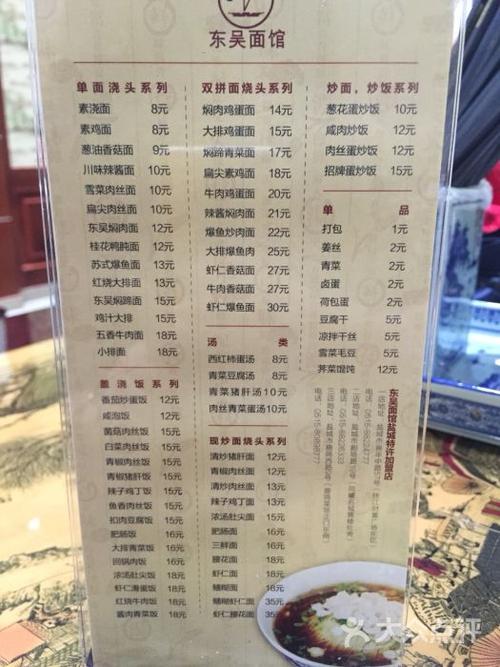 东吴面馆
单面浇头系列
素浇面 8元
素鸡面 8元
葱油香菇面 9元
川味辣酱面 10元
雪菜肉丝面 10元
扁尖肉丝面 10元
东吴焖肉面 12元
桂花鸭肫面 12元
苏式爆鱼面 13元
红烧大排面 13元
东吴焖蹄面 15元
鸡汁大排 15元
五香牛肉面 18元
小排面 18元
盖浇饭系列
番茄炒蛋饭 10元
咸泡饭 12元
菌菇肉丝饭 15元
白菜肉丝饭 15元
青椒肉丝饭 15元
青椒猪肝饭 15元
辣子鸡丁饭 15元
鱼香肉丝饭 15元
扣肉豆腐饭 15元
肥肠饭 16元
大排青菜饭 16元
回锅肉饭 16元
浓汤肚尖饭 18元
虾仁滑蛋饭 18元
红烧牛肉饭 18元
酱肉青菜饭 18元
双拼面烧头系列
焖肉鸡蛋面 14元
大排鸡蛋面 15元
焖蹄青菜面 17元
扁尖素鸡面 18元
牛肉鸡蛋面 20元
辣酱焖肉面 21元
爆鱼炒肉面 22元
大排爆鱼面 25元
虾仁香菇面 27元
牛肉香菇面 27元
虾仁爆鱼面 30元
汤 类
西红柿蛋汤 8元
青菜豆腐汤 8元
青菜猪肝汤 10元
肉丝青菜蛋汤 10元
现炒面烧头系列
清炒猪肝面 12元
青椒肉丝面 12元
清炒肉丝面 12元
辣子鸡丁面 12元
浓汤肚尖面 15元
肥肠面 15元
三鲜面 18元
腰花面 18元
虾仁面 18元
鳝糊面 18元
鳝糊虾仁面 35元
虾仁腰花面 35元
炒面，炒饭系列
葱花蛋炒饭 10元
咸肉炒饭 12元
肉丝蛋炒饭 12元
招牌蛋炒饭 15元
单 品
打包 1元
姜丝 2元
青菜 2元
卤蛋 2元
荷包蛋 2元
豆腐干 5元
凉拌干丝 5元
雪菜毛豆 5元
荠菜馄饨 12元
东吴面馆盐城特许加盟店
大众点评